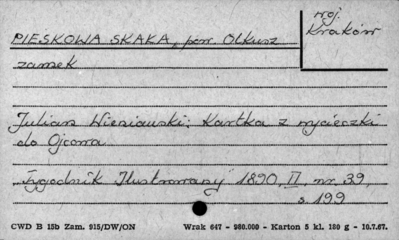 woj.
Kraków
PIESKOWA SKAŁA, pow. Olkusz
zamek
Julian Wieniawski: Kartka z wycieczki
do Ojcowa
"Tygodnik Ilustrowany" 1890, II, nr. 39,
s. 199
CWD B 15b Zam. 915/DW/ON Wrak 647 - 980.000 - Karton 5 kl. 180 g - 10.7.67.